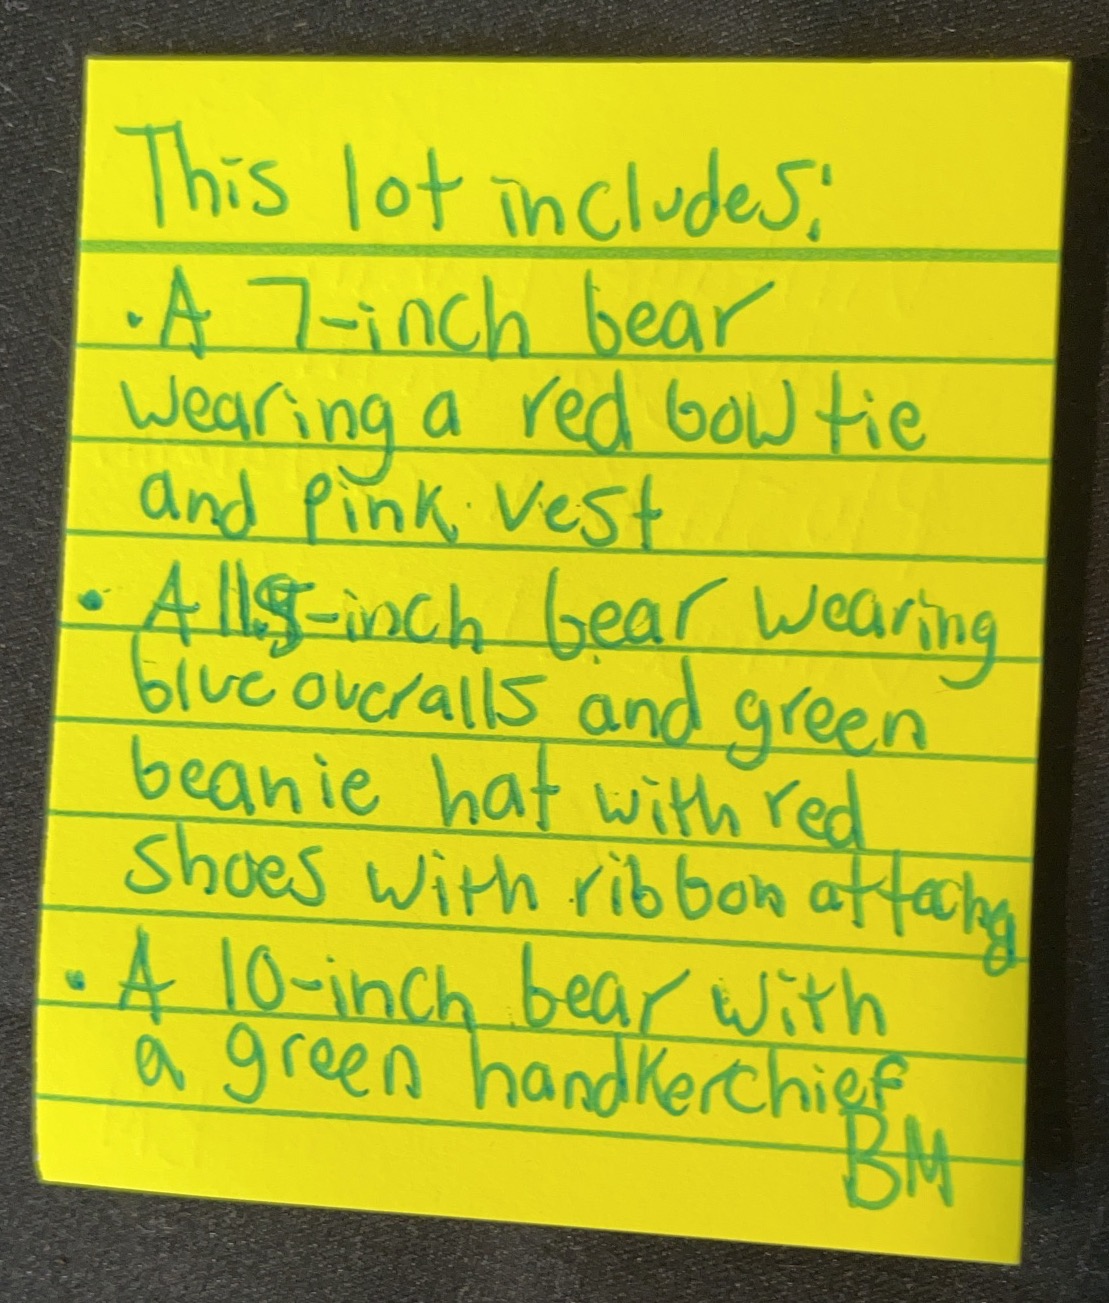 This lot includes:
• A 7-inch bear
wearing a red bow tie
and pink vest
• A 11.5-inch bear wearing
blue overalls and green
beanie hat with red
shoes with ribbon
• A 10-inch bear with
a green handkerchief
BM